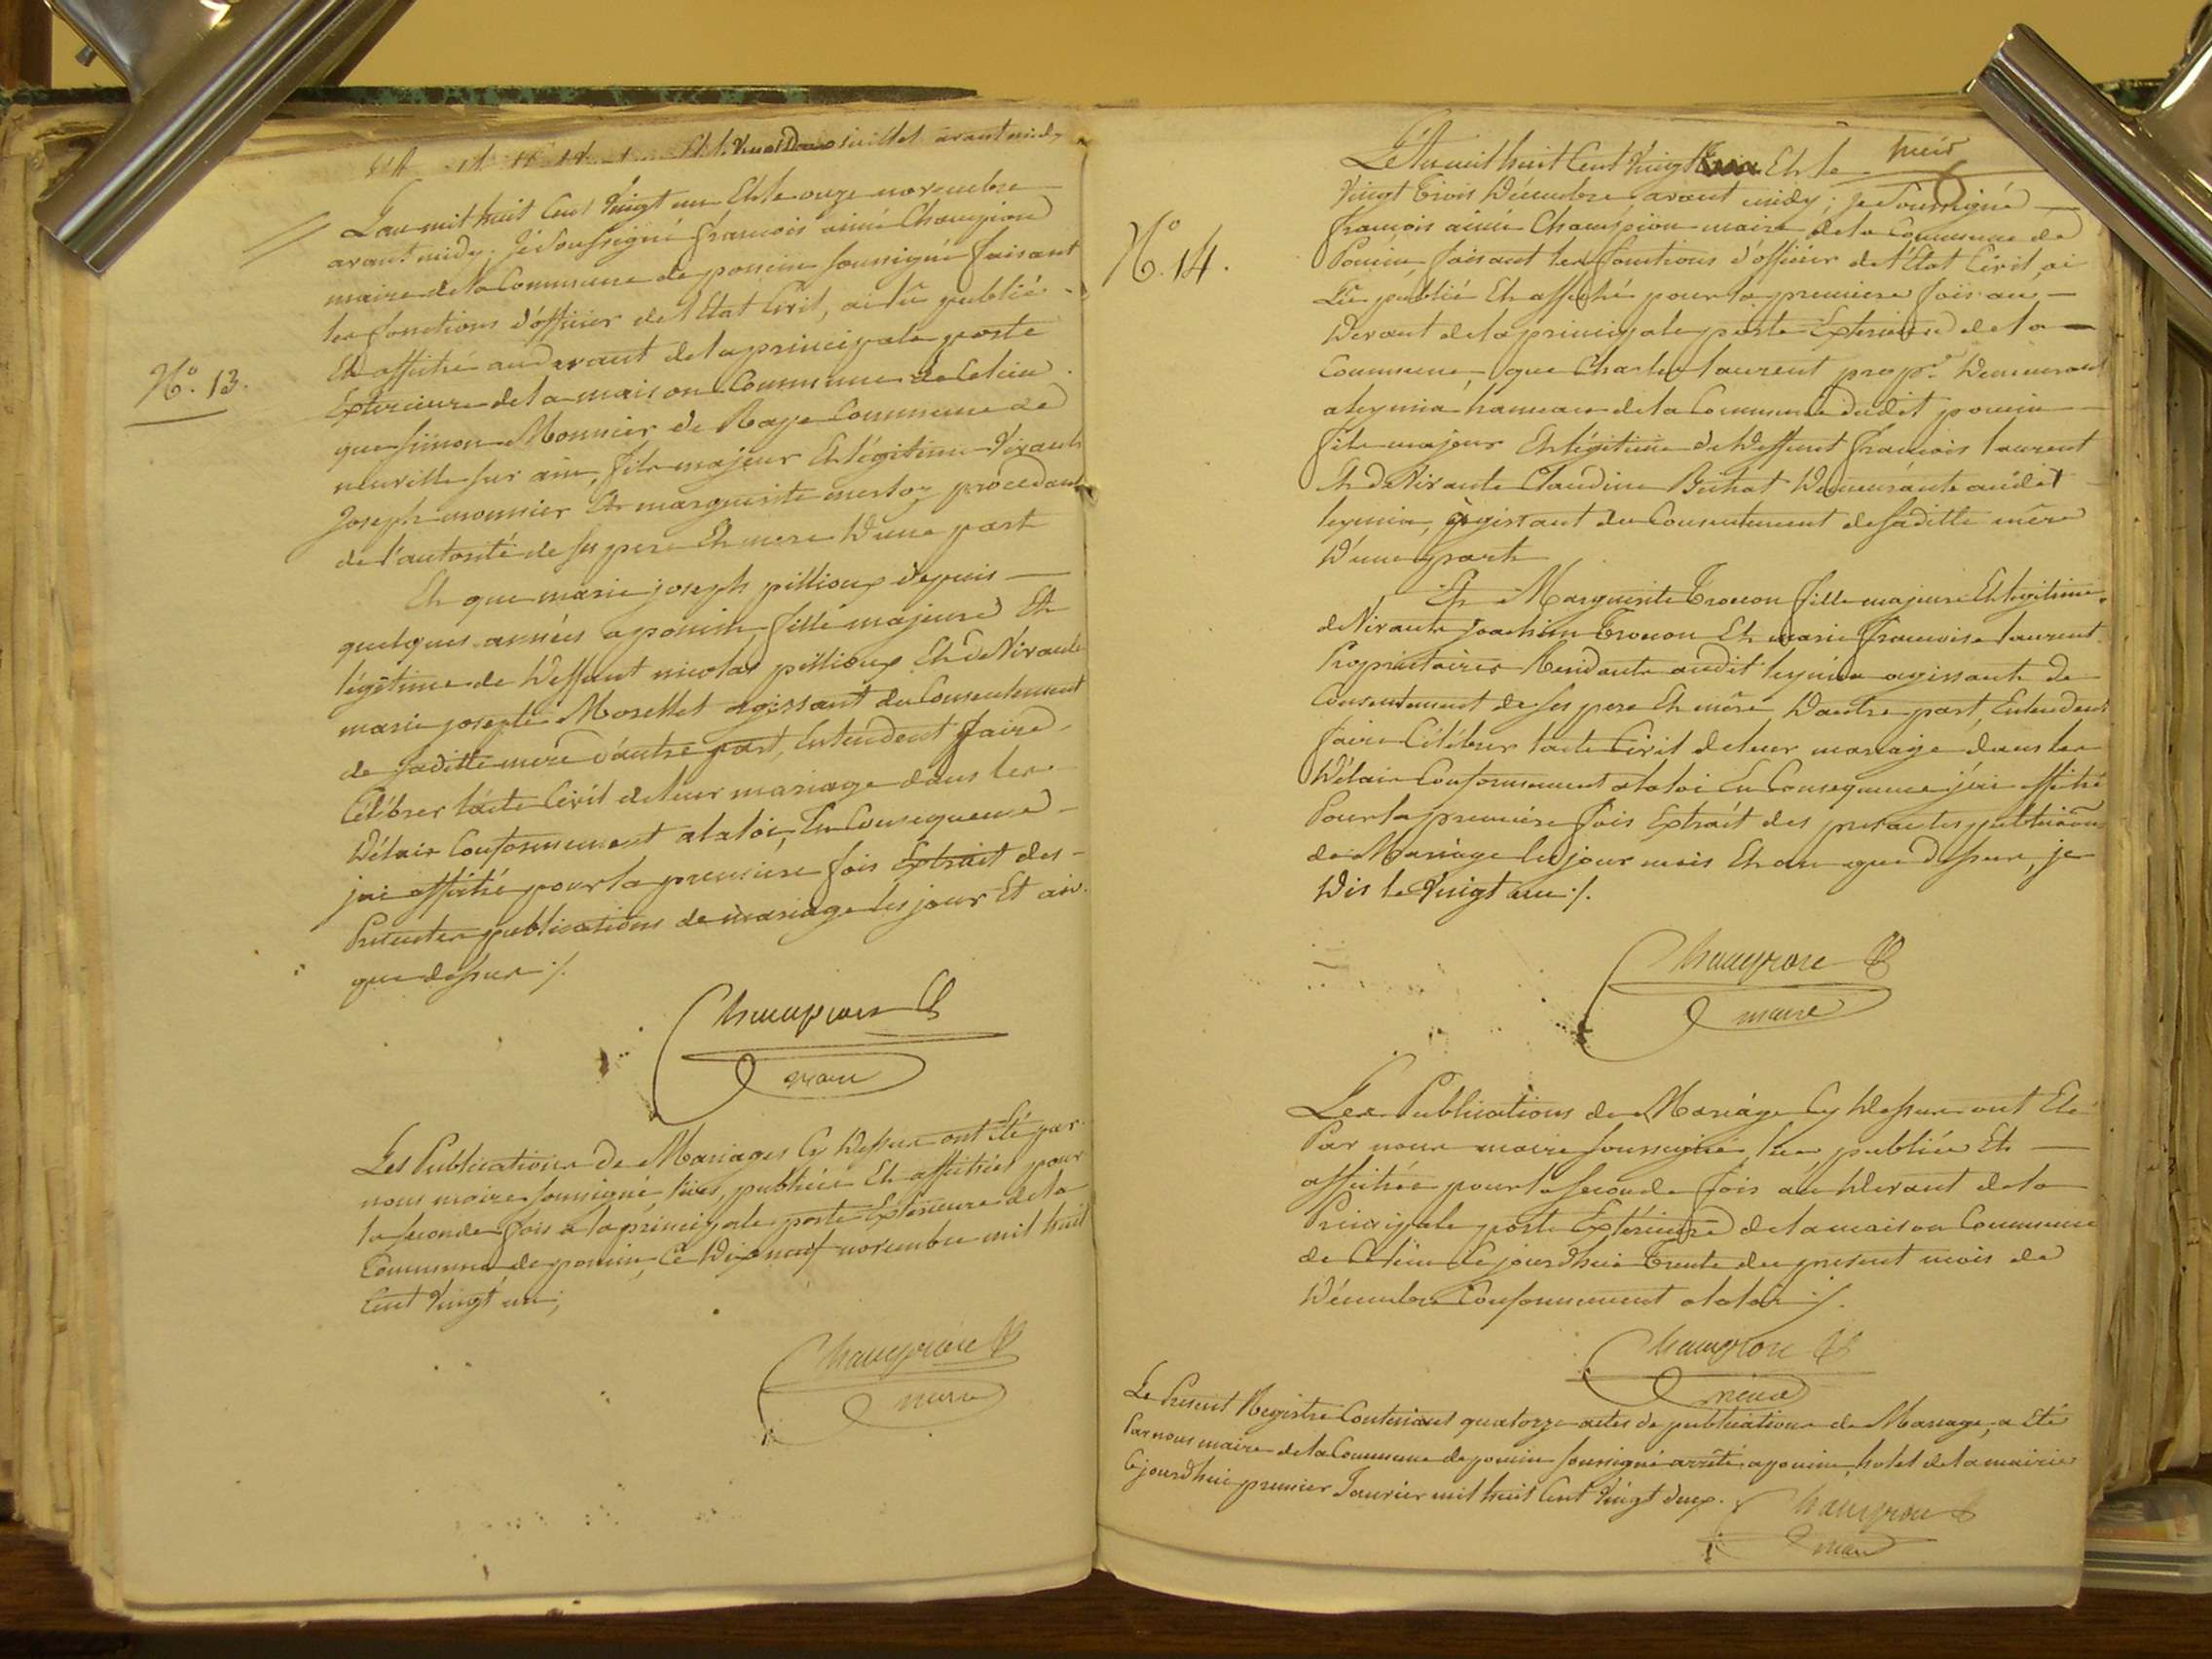 juillet avant midy
L'an mil huit Cent Vingt un Et le onze novembre
avant midy, Je Soussigné françois aimé Champion
maire de la Commune de poncin soussigné faisant
les fonctions d'officier de l'Etat Civil, ai lû publié
Et affiché au devant de la principale porte
Exterieure de la maison Commune de Ce lieu
N.º 13.
que simon Monnier de Commune de
neuville sur ain, fils majeur Et légitime Vivants
Joseph monnier Et marguerite procedant
de l'autorité de ses pere Et mere D'une part
Et que marie joseph pillioux depuis
quelques années a poncin, fille majeure Et
légitime de Deffunt nicolas pillioux Et de Vivante
marie josephe agissant du Consentement
de saditte mere d'autre part, Entendent faire
Célébrer l'acte Civil de leur mariage dans les
Délais Conformement a la loi, En Consequence
j'ai affiché pour la premiere fois Extrait des
Presentes publications de mariage les jour Et an
que dessus ./.
Champion
maire
Les Publications de Mariages Cy Dessus ont Eté par
nous maire soussigné lües, publiées Et affichées pour
la seconde fois a la principale porte Exterieure de la
Commune de poncin, Ce Dix neuf novembre mil huit
Cent Vingt un;
Champion
maire
huit
L'An mil huit Cent Vingt Et le
Vingt trois Décembre avant midy; Je Soussigné
françois aimé Champion maire de la Commune de
Poncin, faisant les fonctions d'officier de l'Etat Civil, ai
Lû publié Et affiché pour la premiere fois au
Devant de la principale porte Exterieure de la
N.º 14.
Commune, que Charles laurent prop.re Demeurant
a leymia hameau de la Commune dudit poncin
fils majeur Et légitime de Deffunt françois laurent
Et de Vivante Claudine Demeurante audit
leymia, agissant du Consentement de saditte mere
D'une part
Et Marguerite fille majeure Et legitime
de Vivants Joachim Et marie françoise laurent
Proprietaires Residants audit leymia agissante de
Consentement de ses pere Et mere D'autre part, Entendent
faire Célébrer l'acte Civil de leur mariage dans les
Délais Conformement a la loi En Consequence j'ai affiché
Pour la premiere fois Extrait des presentes publications
de Mariage les jour mois Et an que dessus, je
Dis le Vingt un ./.
Champion
maire
Les Publications de Mariage Cy Dessus ont Eté
Par nous maire soussigné lües, publiées Et
affichées pour la seconde fois au Devant de la
Principale porte Extérieure de la maison Commune
de Ce lieu Cejourdhui trente du present mois de
Décembre Conformement a la loi ./.
Champion
maire
Le Present Registre Contenant quatorze actes de publications de Mariage, a Eté
Par nous maire de la Commune de poncin soussigné arrêté a poncin, hotel de la mairie
Cejourdhui premier Janvier mil huit Cent Vingt deux.
Champion
maire